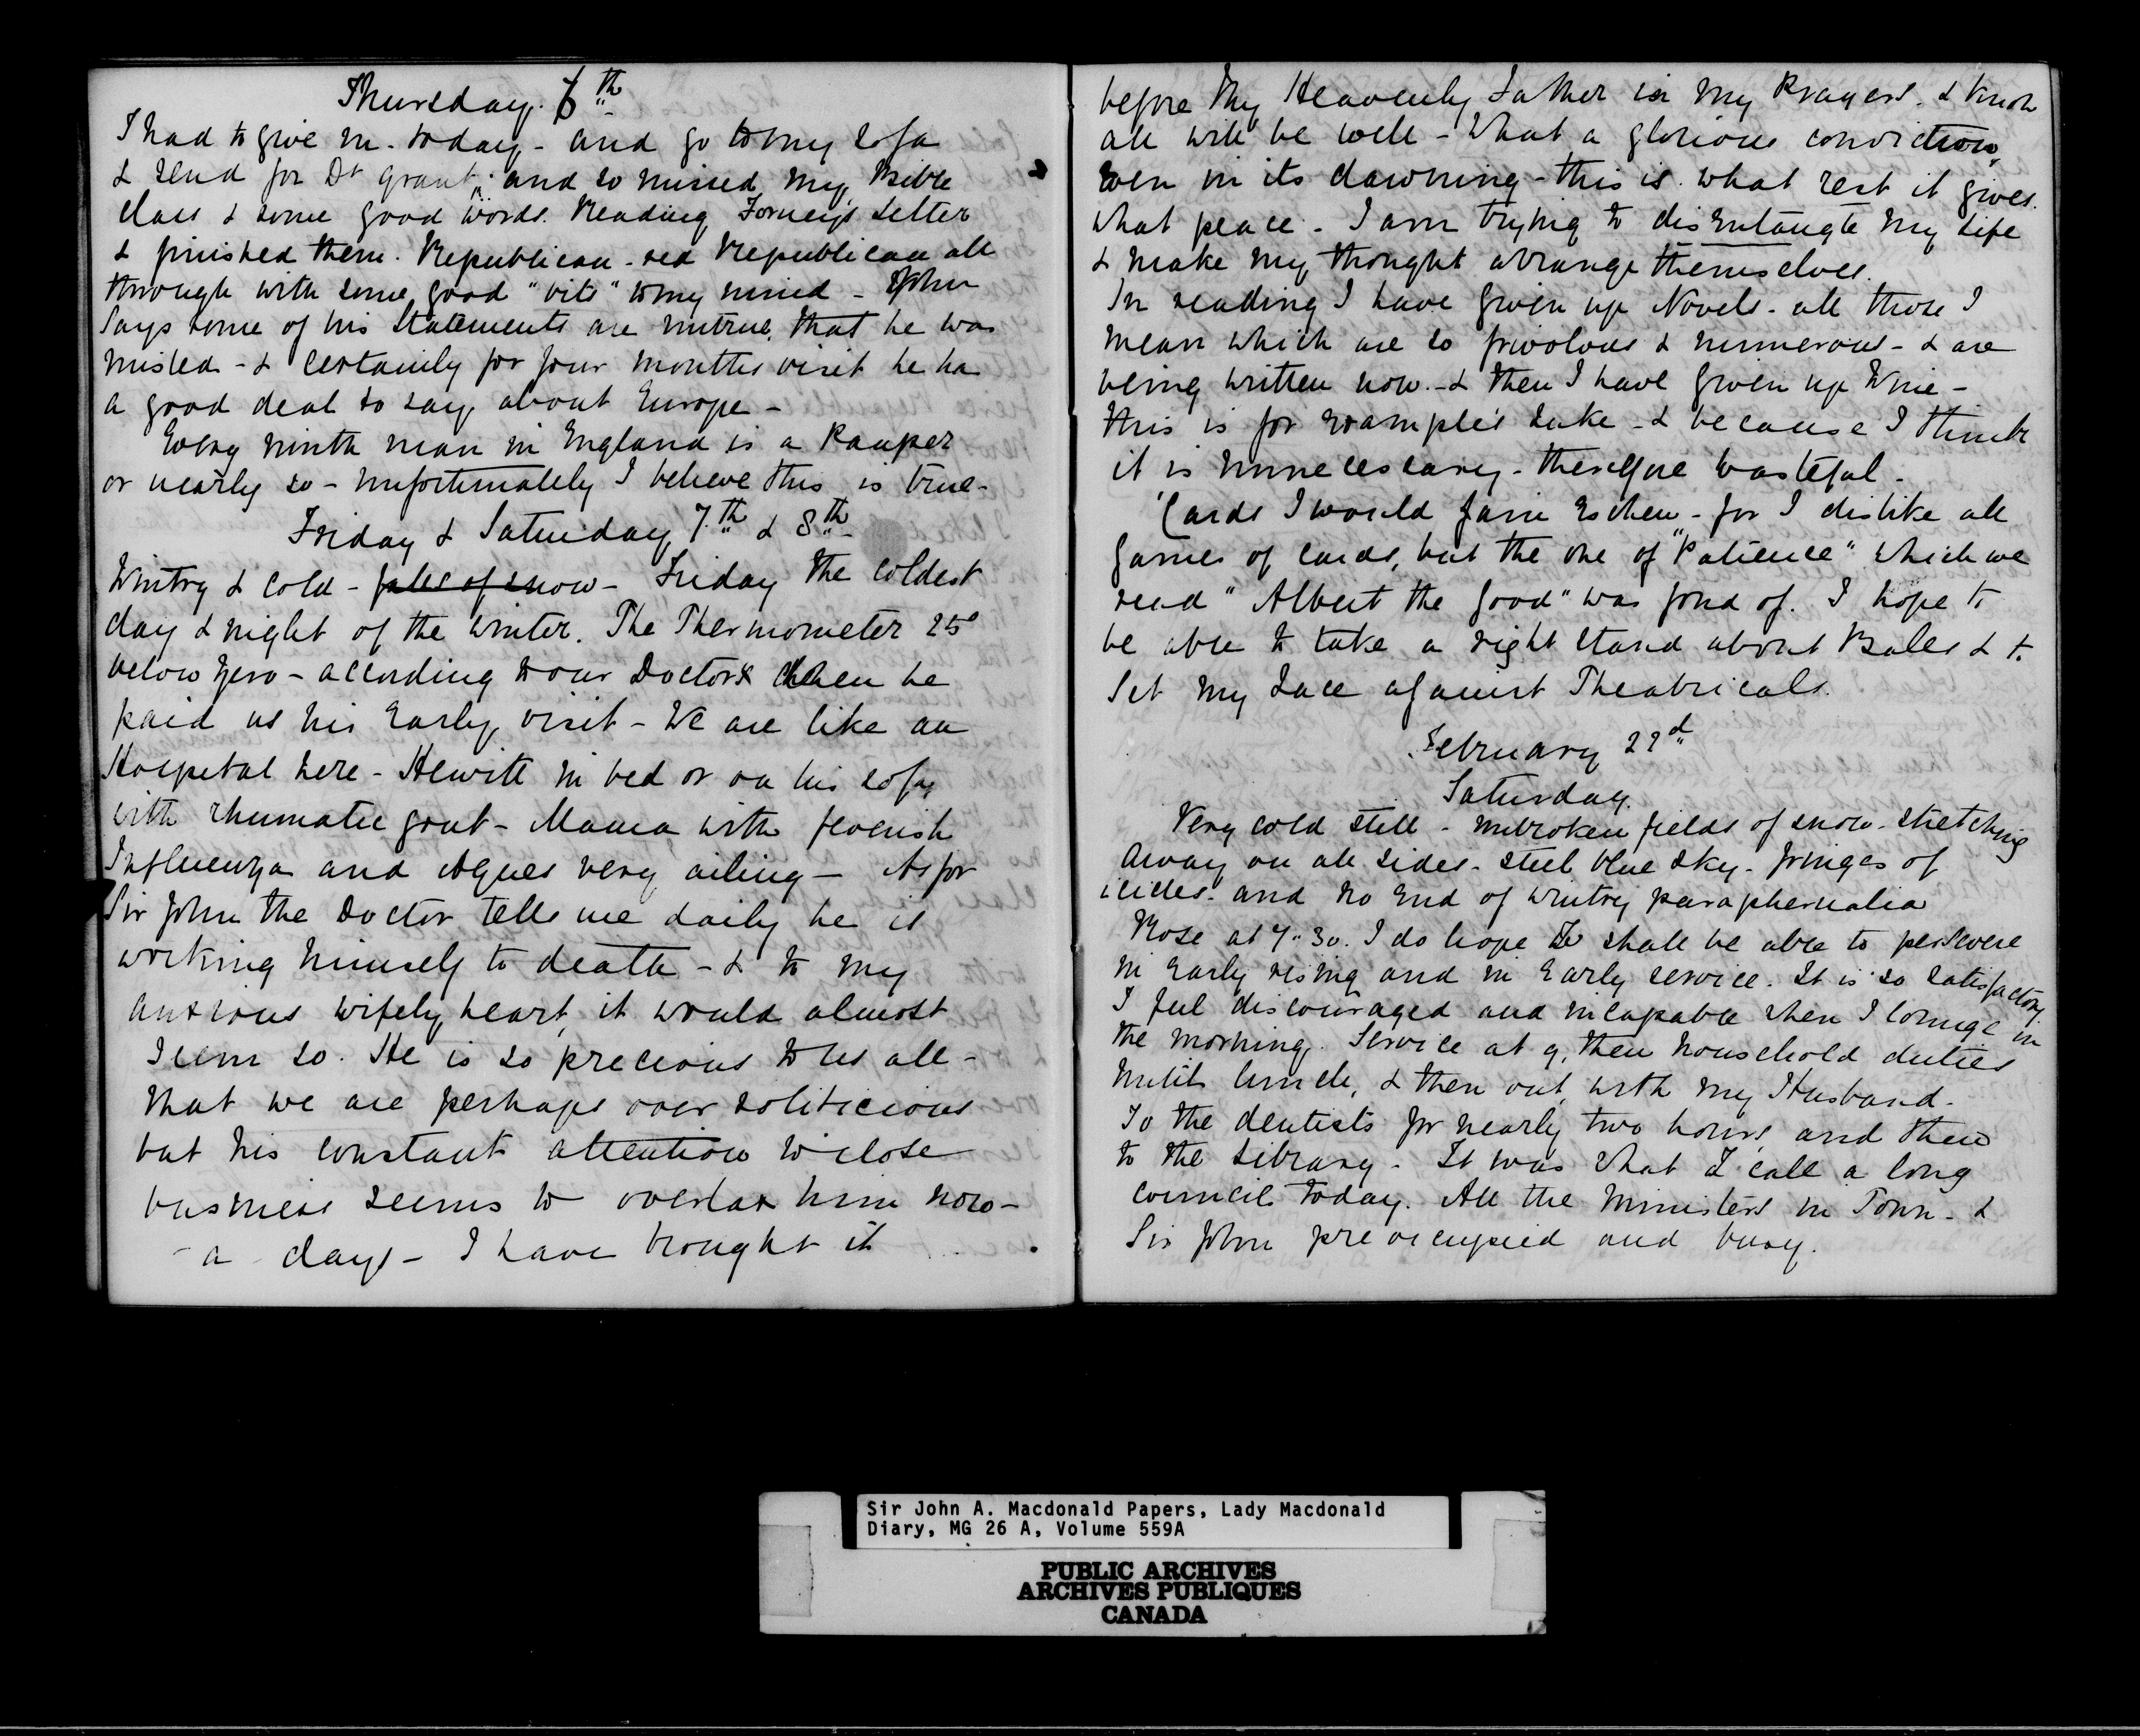 Thursday. 6th
I had to give in - today - and go to my sofa
& send for Dr Grant, and so missed my Bible
class & some good words. Reading Forney's Letter
& finished them. Republican - red Republican all
through with some good "bits" to my mind - John
says some of his statements are untrue, that he was
misled - & certainly for four months visit he ha
a good deal to say about Europe -
Every ninth man in England is a Pauper
or nearly so - unfortunately I believe this is true -
Friday & Saturday 7th & 8th
Wintry & cold - falls of snow - Friday the coldest
day & night of the winter. The Thermometer 25°
below zero - according to our Doctor when he
paid us his early visit - We are like an
Hospital here - Hewitt in bed or on his sofa
with rhumatic gout - Mama with feverish
Influenza and Agnes very ailing - As for
Sir John the Doctor tells me daily he is
working himself to death - & to my
anxious wifely heart, it would almost
seem so. He is so precious to us all -
that we are perhaps over soliticious
but his constant attention to close
business seems to overtax him now -
- a - days - I have brought it
before My Heavenly Father in my Prayers - & know
all will be well - What a glorious conviction,
Even in its dawning - this is. what rest it gives.
what peace - I am trying to disentangle my Life
& make my thought arrange themselves.
In reading I have given up Novels - all those I
mean which are so frivolous & numerous - & are
being written now - & then I have given up Wine -
this is for example's sake - & because I think
it is unnecessary - therefore wasteful -
Cards I would fain Eschew - for I dislike all
games of cards, but the one of "Patience" which we
read "Albert the Good" was fond of. I hope to
be able to take a right stand about Balls & to
Set my Face against Theatricals.
February 22d
Saturday.
Very cold still - unbroken fields of snow - stretching
away on all sides - steel blue sky - fringes of
icicles - and no end of wintry paraphernalia
Rose at 7.30. I do hope I shall be able to persevere
in Early rising and in Early service. It is so satisfactory
I feel discouraged and incapable when I lounge in
the morning. Service at 9, then household duties
until lunch, & then out with my Husband -
To the dentists for nearly two hours, and then
to the Library - It was what I call a long
council today. All the Ministers in Town - &
Sir John preoccupied and busy.
Sir John A. Macdonald Papers, Lady Macdonald
Diary, MG 26 A, Volume 559A
PUBLIC ARCHIVES
ARCHIVES PUBLIQUES
CANADA